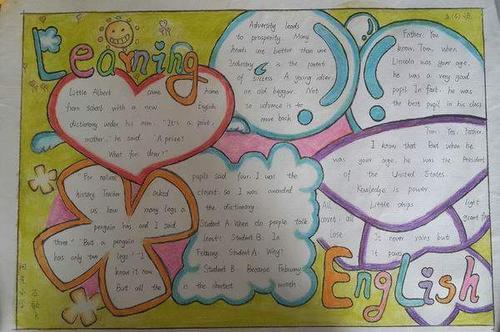 Learning
Little Albert came home
from school with a new English
dictionary under his arm. "It's a prize,
mother," he said. "A prize?
What for, dear?"
"For natural
history. Teacher asked
us how many legs a
penguin has and I said
three." "But a penguin
has only two legs." "I
know it now.
But all the
pupils said four. I was the
closest. So I was awarded
the dictionary.
Student A: When do people talk
least? Student B: In
February. Student A: Why?
Student B: Because February
is the shortest month
Adversity leads
to prosperity. Many
heads are better than one.
Industry is the parent
of success. A young idler,
an old beggar. Not
to advance is to
move back.
Father: You
know, Tom, when
Lincoln was your age,
he was a very good
pupil. In fact, he was
the best pupil in his class
Tom: Yes, Father.
I know that. But when he
was your age, he was the President
of the United States.
Knowledge is power.
All Little chips light
covet, all
lose It never rains but
it pours
English